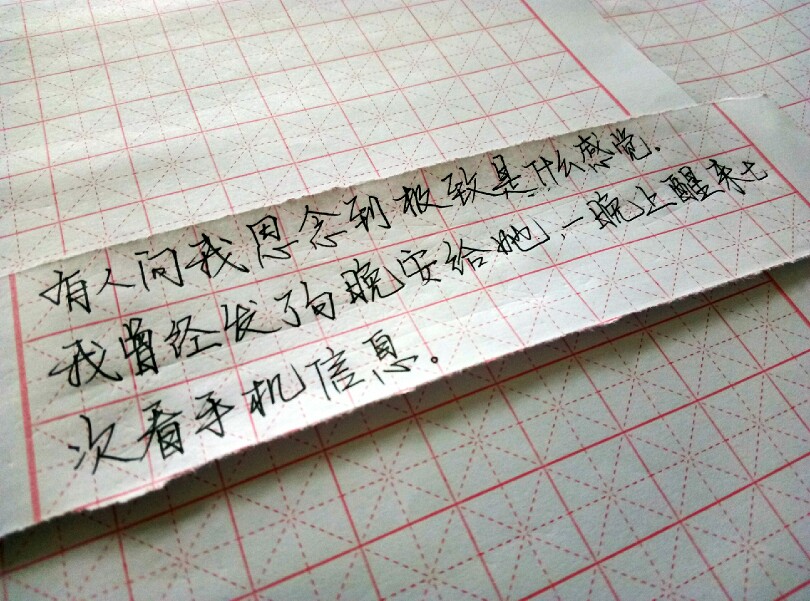 有人问我思念到极致是什么感觉.
我曾经发了句晚安给她,一晚上醒来七
次看手机信息。